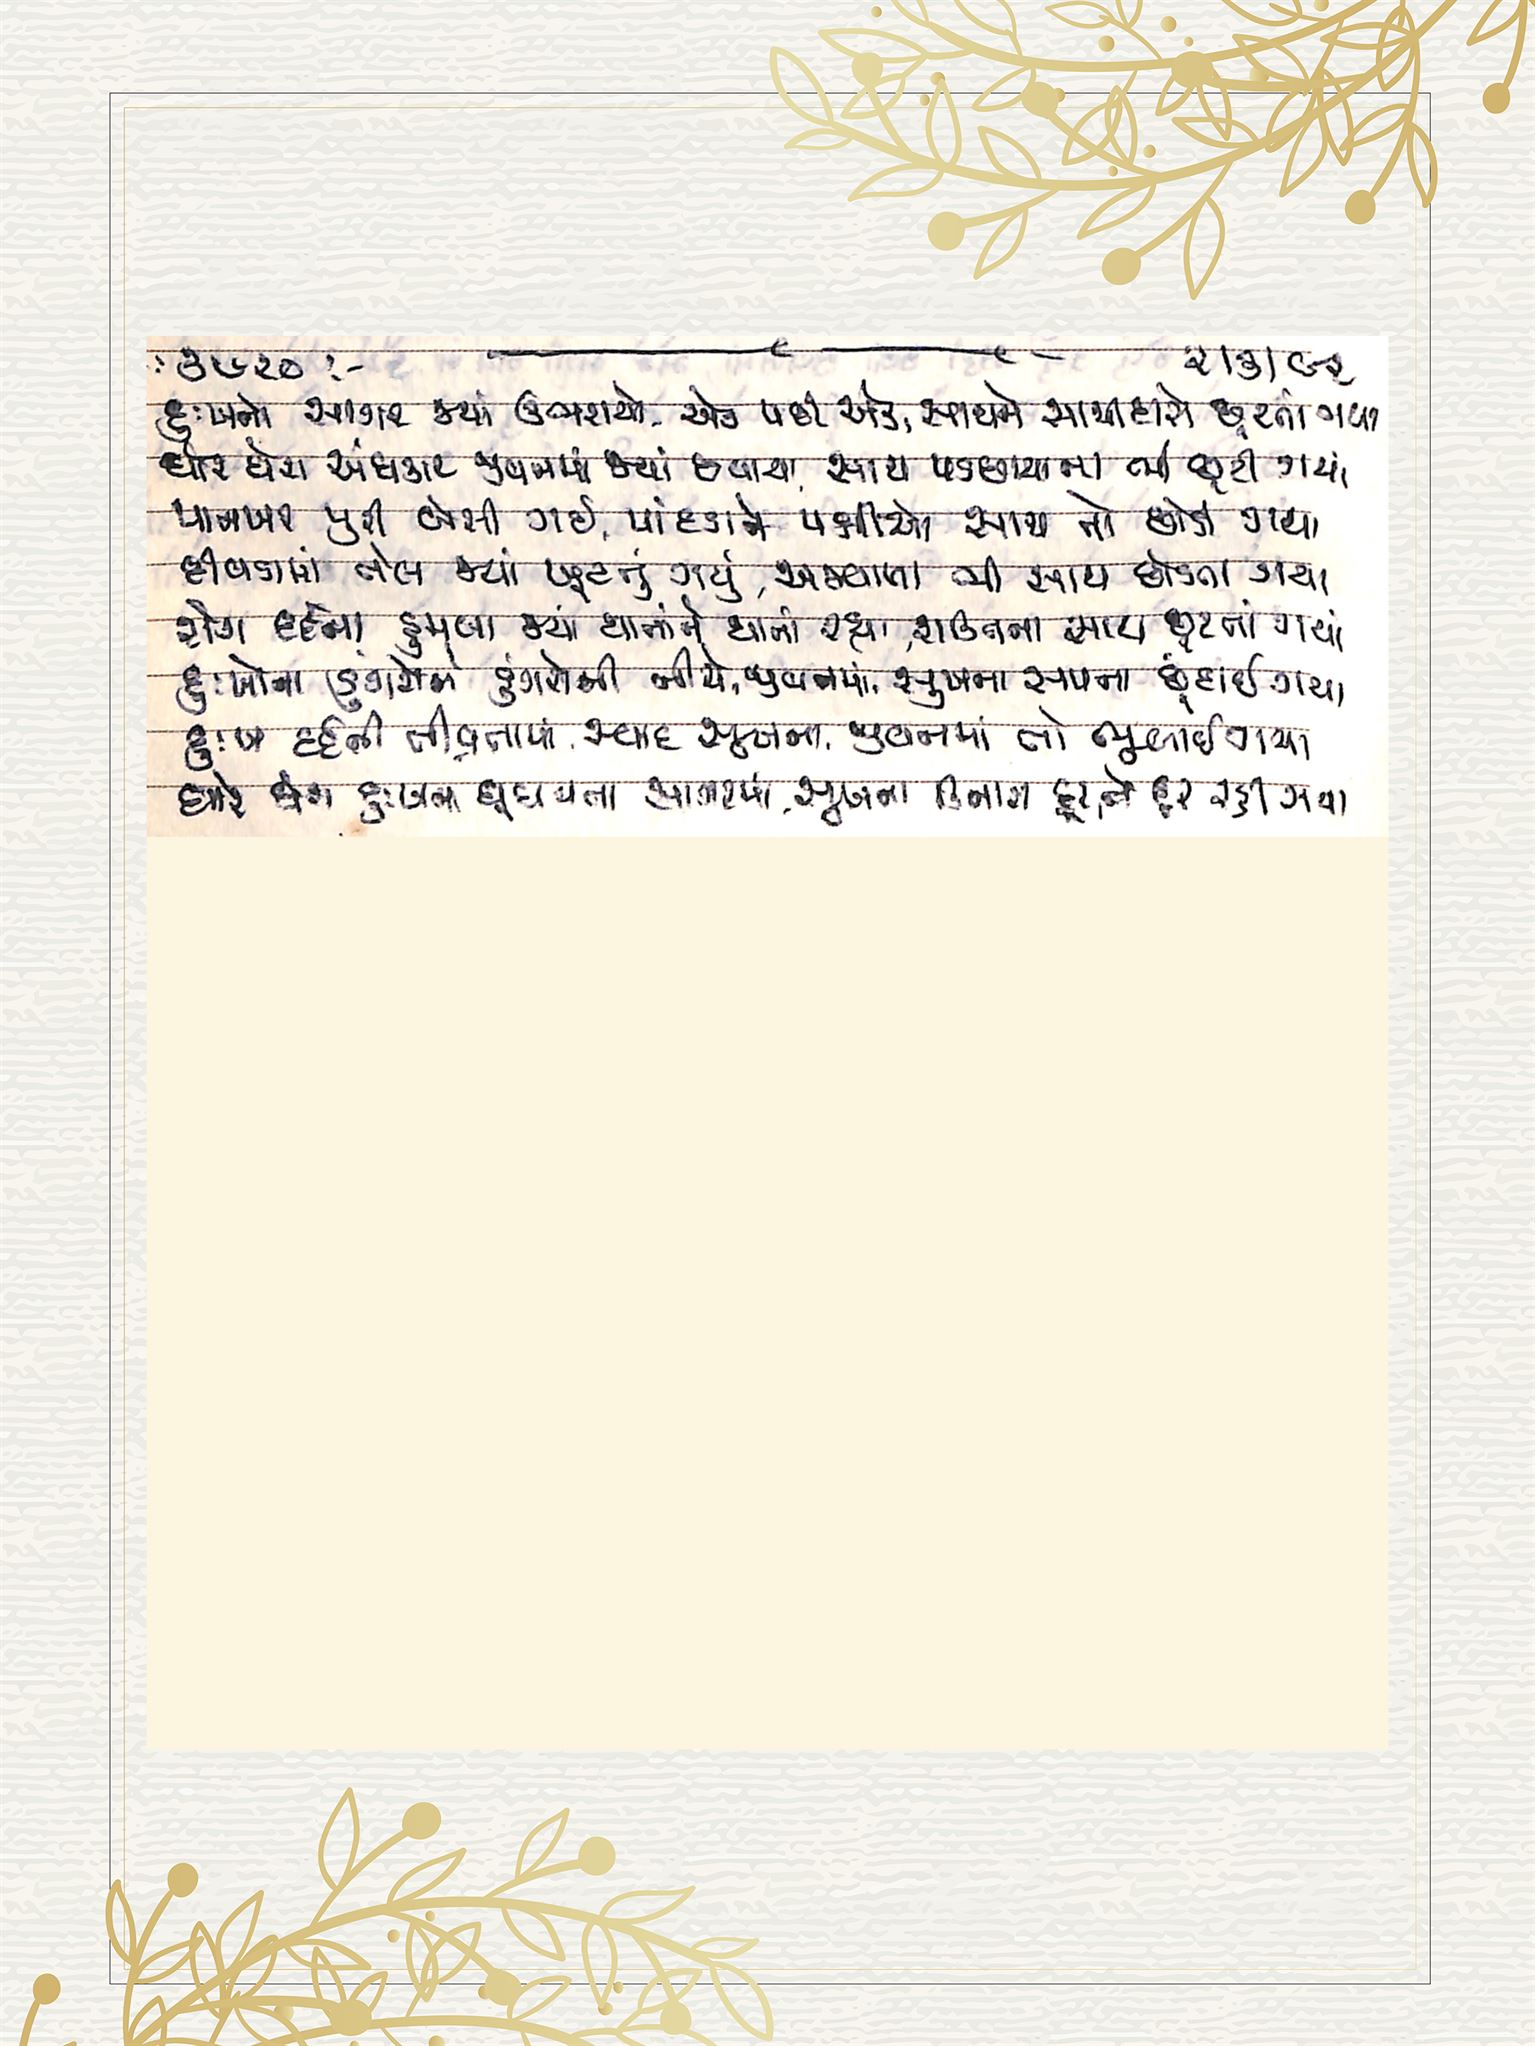 :૩૭૨૦:- ૨/૩/૯૨
દુઃખનો સાગર જ્યાં ઉભરાયો, એક પછી એક, સાથને સાથીદારો છૂટતાં ગયા
ઘોર ઘેરા અંધકાર જીવનમાં જ્યાં છવાયા, સાથ પડછાયાના ભી છૂટી ગયાં
પાનખર પુરી બેસી ગઈ, પાંદડાને પક્ષીઓ સાથ તો છોડી ગયા
દીવડામાં તેલ જ્યાં ખૂટતું ગયું, અજવાળા ભી સાથ છોડતા ગયા
રોગ દર્દના હુમલા જ્યાં થાતાંને થાતાં રહ્યા, રાઉનના સાથ છૂટતાં ગયાં
દુઃખોના ડુંગરોને ડુંગરોની નીચે, જીવનમાં, સુખના સપના છૂંદાઈ ગયા
દુઃખ દર્દની તીવ્રતામાં, સ્વાદ સુખના, જીવનમાં તો ભુલાઈ ગયા
ઘોર ઘેરા દુઃખના ઘૂઘવતા સાગરમાં, સુખના કિનારા દૂર ને દૂર રહી ગયા